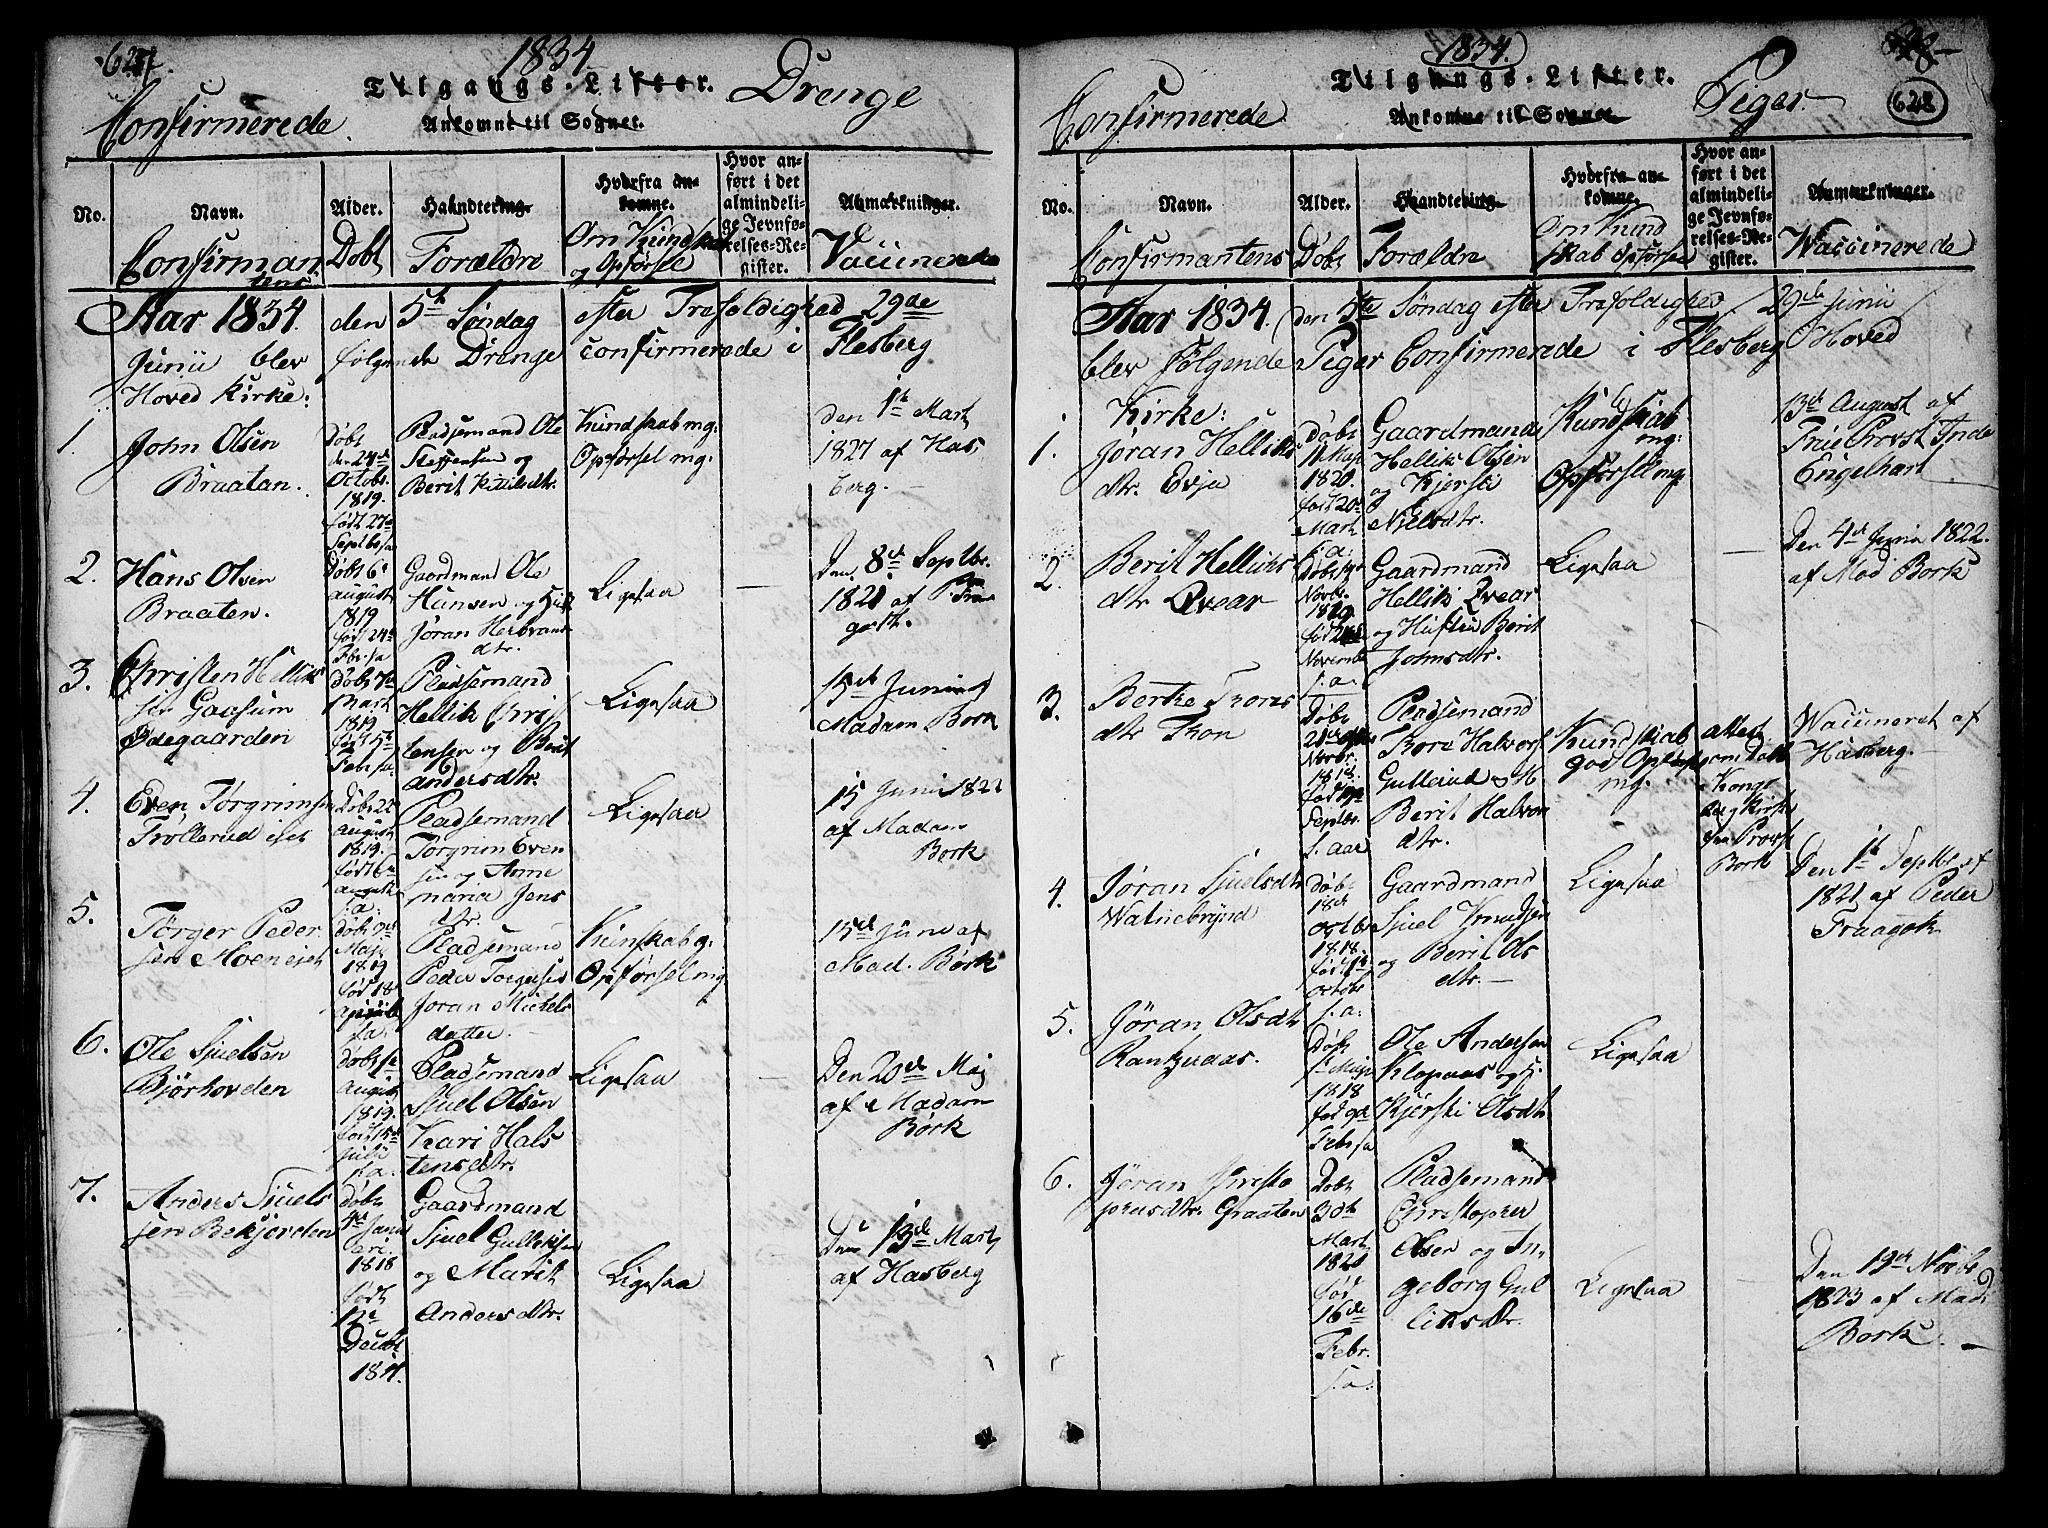 627.
1834
Tilgangs-Lister.
Drenge
Confirmerede
Ankomne til Sognet.
No.
Navn.
Alder.
Haandtering.
Hvorfra an-
komne.
Hvor an-
ført i det
almindeli-
ge Jevnfø-
relses-Re-
gister.
Anmærkninger.
Confirman
tens
Døbt
Forældre
Om Kundskab
og Opførsel
Vaccinerede
Aar 1834. den 5te Søndag efter Trefoldighed 29de
Junii blev følgende Drenge confirmerede i Flesberg
Hoved Kirke:
1.
John Olsen
Braatan.
Døbt
den 24de
Octobr.
1819.
født 27de
Septbr s.a
Pladsemand Ole
Steffensen og
Berit Kittilsdtr.
Kundskab mg:
Opførsel mg:
den 1te Mart
1827 af Has-
berg.
2.
Hans Olsen
Braaten.
Døbt 6te
August
1819
født 24de
Fbr. s.a
Gaardmand Ole
Hansen og Hust
Jøran Herbrands
dtr.
Ligesaa
Den 8de Septbr.
1821 af P
Traa
goth.
3.
Christen Helliks
sen Gaasum
Ødegaarden
Døbt 7de
Mart
1819
født 5te
Febr s.a.
Pladsemand
Hellik Chris
tensen og Berit
Andersdtr.
Ligesaa
15de Junii af
Madam Bork
4.
Even Torgrimsen
Trollerud eiet
Døbt 22
August
1819.
født 6te
August
s.a.
Pladsemand
Torgrim Even
sen og Anne
maria Jens
dtr
Ligesaa
15 Junii 1822
af Madam
Bork
5.
Torger Peder
sen Moen eiet
døbt
Maji
1819
født 18
April
s.a
Pladsemand
Peder Torgersen
Joran Michels
datter
Kunskab g:
Opførsel mg
15de Juni af
Mad. Børk
6.
Ole Sjuelsen
Bjørhovden
Døbt 1te
August
1819.
født 15de
Julii
s.a.
Pladsemand
Sjuel Olsen
Kari Hals
tensdtr.
Ligesaa
Den 20de Maj
af Madam
Børk
7.
Anders Sjuels
sen Bekjorden
Døbt
4de Janu
arii
1818
født
12te
Decbr
1817.
Gaardmand
Sjuel Gulliksen
og Marit
Andersdtr.
Ligesaa
Den 13de Mart
af Hasberg
628
1834.
Tilgangs-Lister.
Piger
628
Confirmerede
Ankomne til Sognet.
No.
Navn.
Alder.
Haandtering.
Hvorfra an-
komne.
Hvor an-
ført i det
almindeli-
ge Jevnfø-
relses-Re-
gister.
Anmærkninger.
Confirmantens
Døbt
Forældre
Om Kund
skab Opførsel
Vaccinerede
Aar 1834. den 5te Søndag efter Trefoldighed 29de Junii
blev Følgende Piger Confirmerede i Flesberg Hoved
Kirke:
1.
Jøran Helliks
dtr. Evju
Døbt
11 Maji
1820.
født 20de
Mart
s.a:
Gaardmand
Hellik Olsen
og Kjersti
Nielsdtr.
Kundskab
mg:
Opførsel mg
13de August af
Frue Provst Inde
Engelhart
2.
Berit Helliks
dtr Qvear
Døbt 14de
Novbr.
1819
født
Novembr
s.a.
Gaardmand
Hellik Qvear
og Hustru Berit
Johnsdtr.
Ligesaa
Den 4de Junii 1822.
af Mad Bork
3.
Berthe Thores
dtr Thon
Døbt
21de
Novbr.
1818.
født
Septbr.
s. aar
Pladsemand
Thore Halvors
Gullerud og H.
Berit Halvors
dtr.
Kundskab
god Opførsel
mg.
attest
om Daab
Kongs
berg Kirke
fra Provst
Bork
Vaccineret af
Hasberg.
4.
Jøran Sjuelsdtr
Vatnebrynd
Døbt
18de
octobr
1818.
født 1te
octobr
s.a:
Gaardmand
Sjuel Knudsen
og Berit Ols
dtr.
Ligesaa
Den 1te Septbr af
1821 af Peder
Traagoth
5.
Jøran Olsdtr
Døbt
1te Maji
1818
født 9de
Febr s.a
Ole Andersen
Klopaas og H.
Kjersti Olsdtr
Ligesaa
6.
Jøran Christo
phersdtr. Graaten
Døbt
30te
Mart
1820
født
16de
Febr.
s.a.
Pladsemand
Christopher
Olsen og In-
geborg Gul
liksdtr.
Ligesaa
Den 19de Novbr
1823 af Mad
Bork.